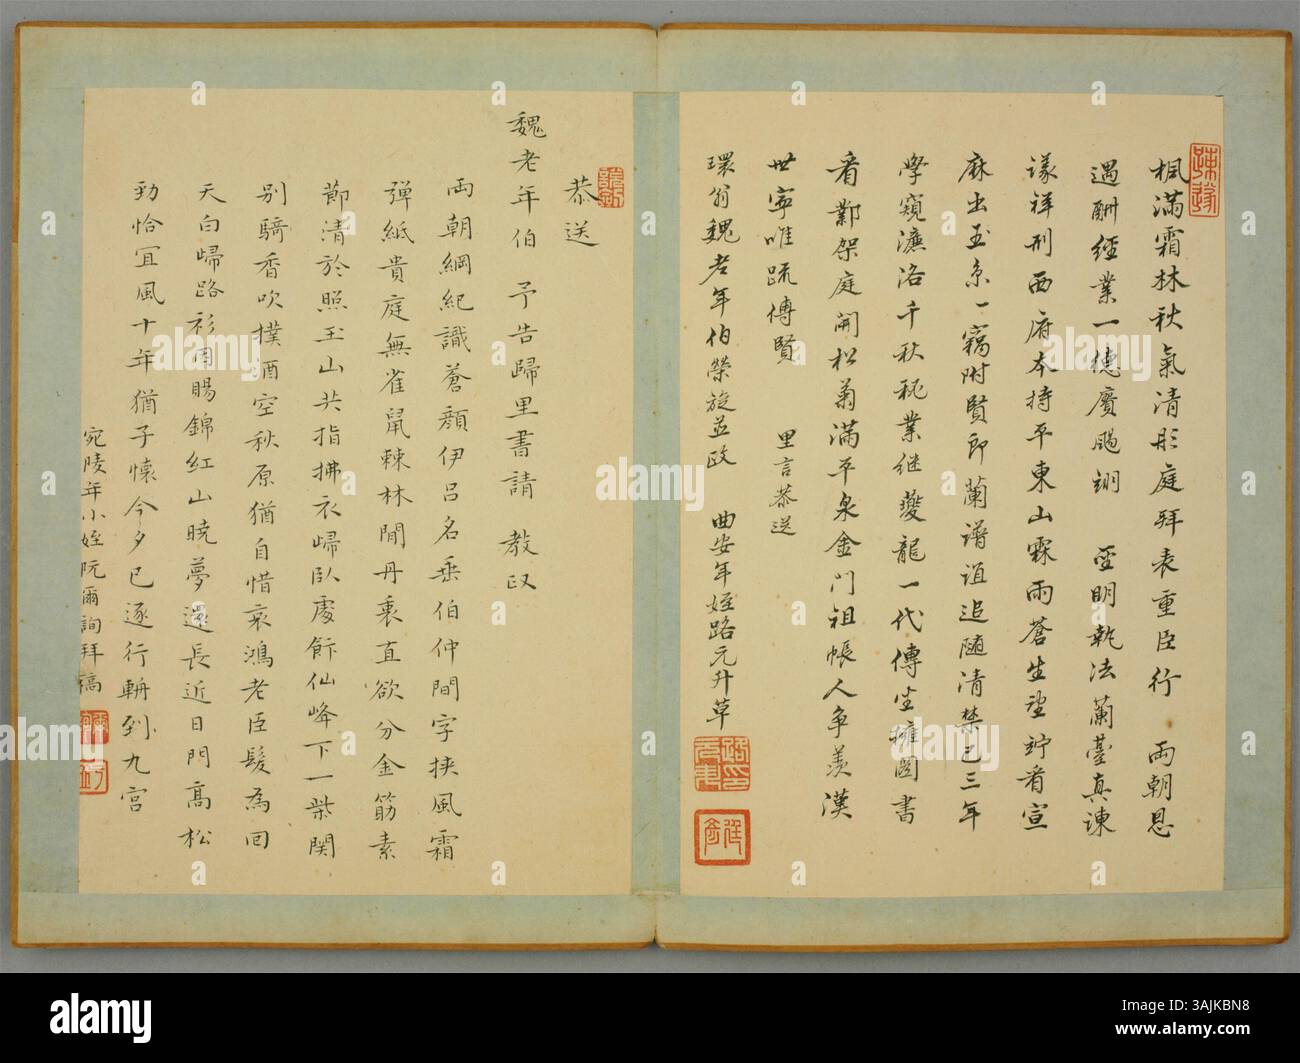 楓滿霜林秋氣清彤庭拜表重臣行　兩朝恩
遇酬經業一德賡颺翊　聖明執法蘭臺真諫
議祥刑西府本持平東山霖雨蒼生望竚看宣
麻出玉京一竊附賢郎蘭譜誼追隨清禁已三年
學窺濂洛千秋業繼夔龍一代傳坐擁圖書
看鄴架庭開松菊滿平泉金門祖帳人爭羨漢
世寧唯疏傅賢　里言恭送
環翁魏老年伯榮旋並政　曲安年姪路元升草
恭送
魏老年伯　予告歸里書請　教政
兩朝綱紀識蒼顏伊呂名垂伯仲間字挾風霜
彈紙貴庭無雀鼠棘林閒丹裹直欲分金筋素
節清於照玉山共指拂衣歸臥處飰仙峰下一柴関
別騎香吹撲酒空秋原猶自惜哀鴻老臣髮為回
天白歸路衫因賜錦紅山曉夢還長近日門高松
勁恰宜風十年猶子懷今夕已逐行輈到九宮
宛陵年小姪阮爾詢拜稿
alamy
Image ID: 3AJKBN8
www.alamy.com